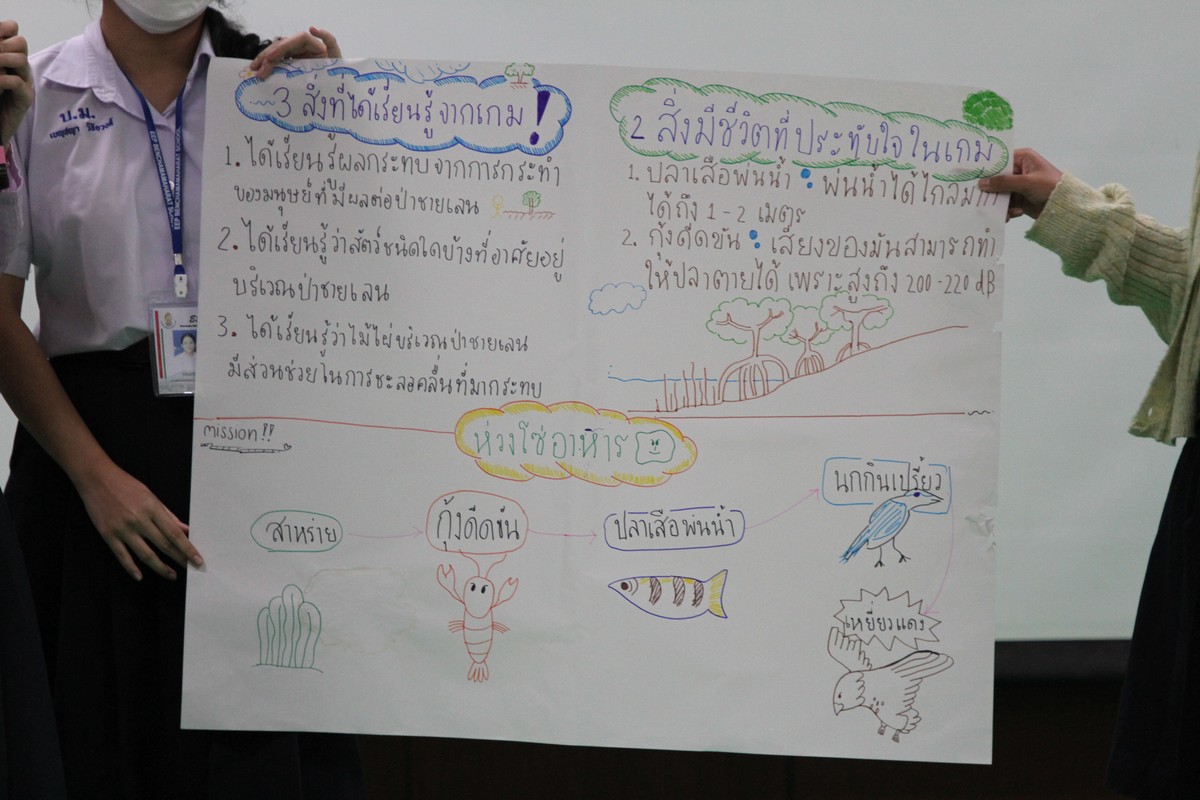 3 สิ่งที่ได้เรียนรู้จากเกม !
1. ได้เรียนรู้ผลกระทบจากการกระทำ
ของมนุษย์ที่มีผลต่อป่าชายเลน
2. ได้เรียนรู้ว่าสัตว์ชนิดใดบ้างที่อาศัยอยู่
บริเวณป่าชายเลน
3. ได้เรียนรู้ว่าไม้ไผ่บริเวณป่าชายเลน
มีส่วนช่วยในการชะลอคลื่นที่มากระทบ
2 สิ่งมีชีวิตที่ประทับใจในเกม
1. ปลาเสือพ่นน้ำ : พ่นน้ำได้ไกลมาก
ได้ถึง 1-2 เมตร
2. กุ้งดีดขัน : เสียงของมันสามารถทำ
ให้ปลาตายได้ เพราะสูงถึง 200-220 dB
mission!!
ห่วงโซ่อาหาร
สาหร่าย
กุ้งดีดขัน
ปลาเสือพ่นน้ำ
นกกินเปรี้ยว
เหยี่ยวแดง
บ.ม.
EEP BENCHAMAMAHARAT SCHOOL